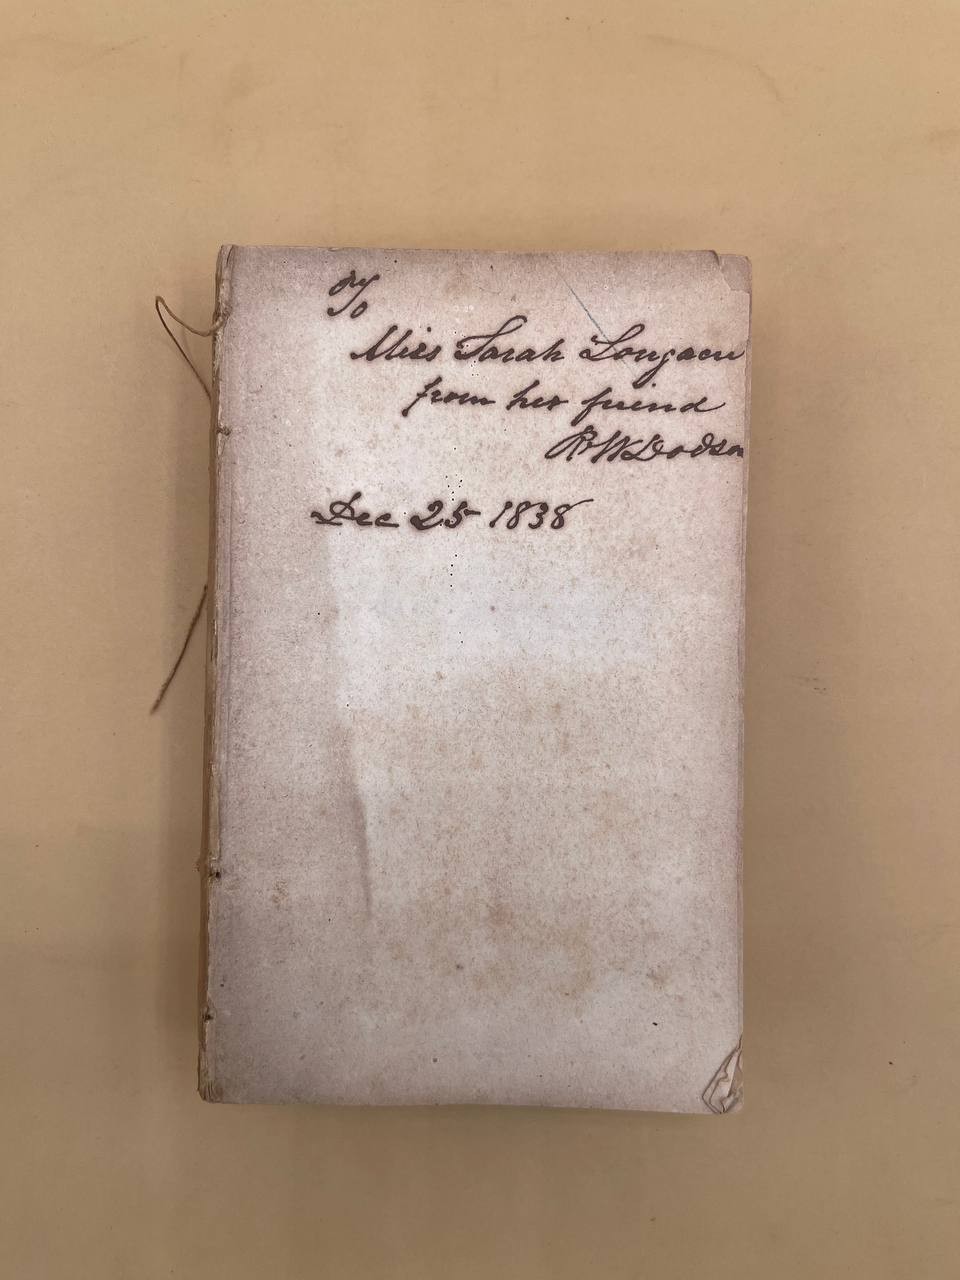 To
Miss Sarah Longacre
from her friend
R W Dodson
Dec 25 1838